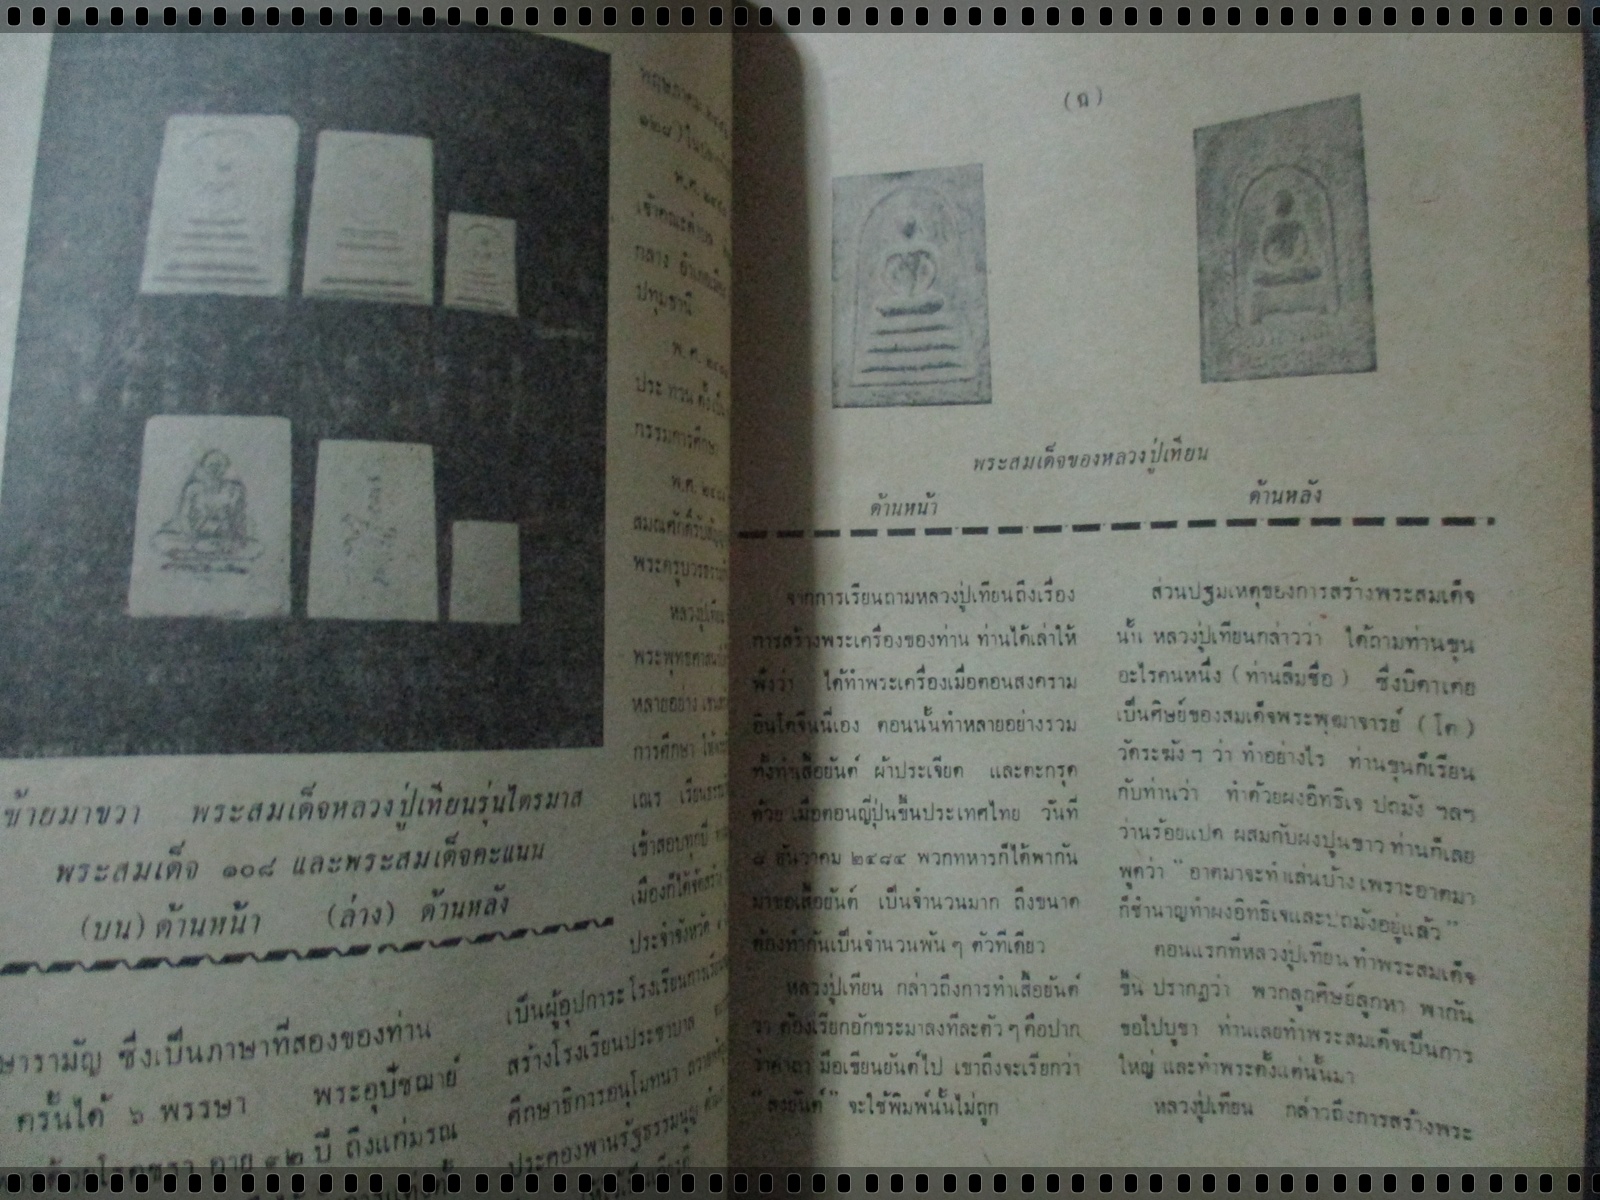 ซ้ายมาขวา พระสมเด็จหลวงปู่เทียนรุ่นไตรมาส
พระสมเด็จ ๑๐๘ และพระสมเด็จคะแนน
(บน) ด้านหน้า (ล่าง) ด้านหลัง
ษารามัญ ซึ่งเป็นภาษาที่สองของท่าน
ครั้นได้ ๖ พรรษา พระอุปัชฌาย์
อายุ ๙๒ ปี ถึงแก่มรณ
กลาง
ปทุมธานี
กรรมการศึกษา
หลายอย่าง
การศึกษา
เณร
เข้าสอบทุกปี
ประจำจังหวัด
เป็นผู้อุปการะโรงเรียนการเรียน
สร้างโรงเรียนประชาบาล
ศึกษาธิการอนุโมทนา
ประคองพานรัฐธรรมนูญ
(ฉ)
พระสมเด็จของหลวงปู่เทียน
ด้านหน้า ด้านหลัง
จากการเรียนถามหลวงปู่เทียนถึงเรื่อง
การสร้างพระเครื่องของท่าน ท่านได้เล่าให้
ฟังว่า ได้ทำพระเครื่องเมื่อตอนสงคราม
อินโดจีนนี่เอง ตอนนั้นทำหลายอย่างรวม
ทั้งทำเสื้อยันต์ ผ้าประเจียด และตะกรุด
ด้วย เมื่อตอนญี่ปุ่นขึ้นประเทศไทย วันที่
๘ ธันวาคม ๒๔๘๔ พวกทหารก็ได้พากัน
มาขอเสื้อยันต์ เป็นจำนวนมาก ถึงขนาด
ต้องทำกันเป็นจำนวนพัน ๆ ตัวทีเดียว
หลวงปู่เทียน กล่าวถึงการทำเสื้อยันต์
ว่า ต้องเรียกอักขระมาลงทีละตัว ๆ คือปาก
ว่าคาถา มือเขียนยันต์ไป เขาถึงจะเรียกว่า
"ลงยันต์" จะใช้พิมพ์นั้นไม่ถูก
ส่วนปฐมเหตุของการสร้างพระสมเด็จ
นั้น หลวงปู่เทียนกล่าวว่า ได้ถามท่านขุน
อะไรคนหนึ่ง (ท่านลืมชื่อ) ซึ่งบิดาเคย
เป็นศิษย์ของสมเด็จพระพุฒาจารย์ (โต)
วัดระฆังฯ ว่า ทำอย่างไร ท่านขุนก็เรียน
กับท่านว่า ทำด้วยผงอิทธิเจ ปถมัง ฯลฯ
ว่านร้อยแปด ผสมกับผงปูนขาว ท่านก็เลย
พูดว่า "อาตมาจะทำเล่นบ้าง เพราะอาตมา
ก็ชำนาญทำผงอิทธิเจและปถมังอยู่แล้ว"
ตอนแรกที่หลวงปู่เทียน ทำพระสมเด็จ
ขึ้น ปรากฏว่า พวกลูกศิษย์ลูกหา พากัน
ขอไปบูชา ท่านเลยทำพระสมเด็จเป็นการ
ใหญ่ และทำพระตั้งแต่นั้นมา
หลวงปู่เทียน กล่าวถึงการสร้างพระ